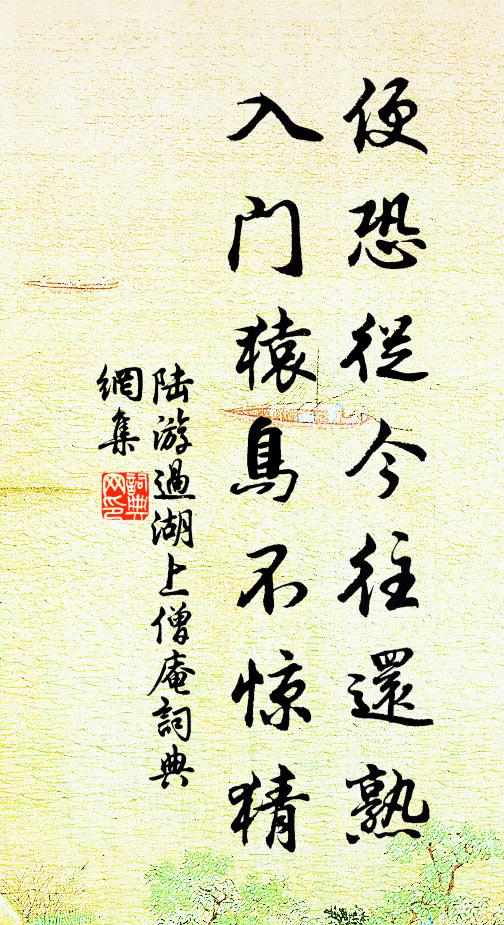 便恐從今往還熟
入门猿鳥不惊猜
陆游過湖上僧庵詞典
網集
詞典网印